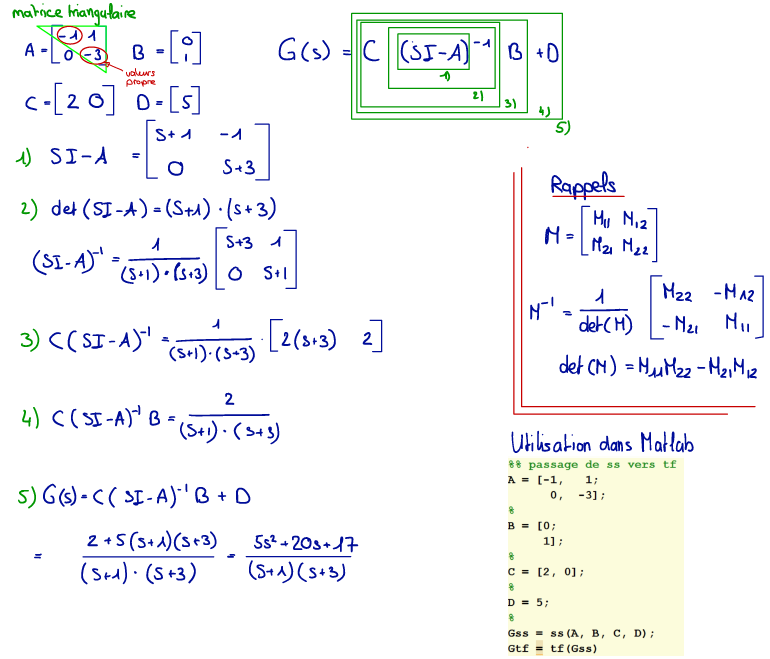 matrice triangulaire
A = [-1 1; 0 -3] B = [0; 1]
valeurs propre
C = [2 0] D = [5]
G(s) = C (SI-A)⁻¹ B + D
1)
2)
3)
4)
5)
1) SI-A = [s+1 -1; 0 s+3]
2) det(SI-A) = (s+1)·(s+3)
(SI-A)⁻¹ = 1/((s+1)·(s+3)) [s+3 1; 0 s+1]
3) C(SI-A)⁻¹ = 1/((s+1)·(s+3)) · [2(s+3) 2]
4) C(SI-A)⁻¹ B = 2/((s+1)·(s+3))
5) G(s) = C(SI-A)⁻¹ B + D
= (2+5(s+1)(s+3))/((s+1)·(s+3)) = (5s²+20s+17)/((s+1)(s+3))
Rappels
M = [M11 M12; M21 M22]
M⁻¹ = 1/det(M) [M22 -M12; -M21 M11]
det(M) = M11M22 - M21M12
Utilisation dans Matlab
%% passage de ss vers tf
A = [-1, 1;
0, -3];
%
B = [0;
1];
%
C = [2, 0];
%
D = 5;
%
Gss = ss(A, B, C, D);
Gtf = tf(Gss)